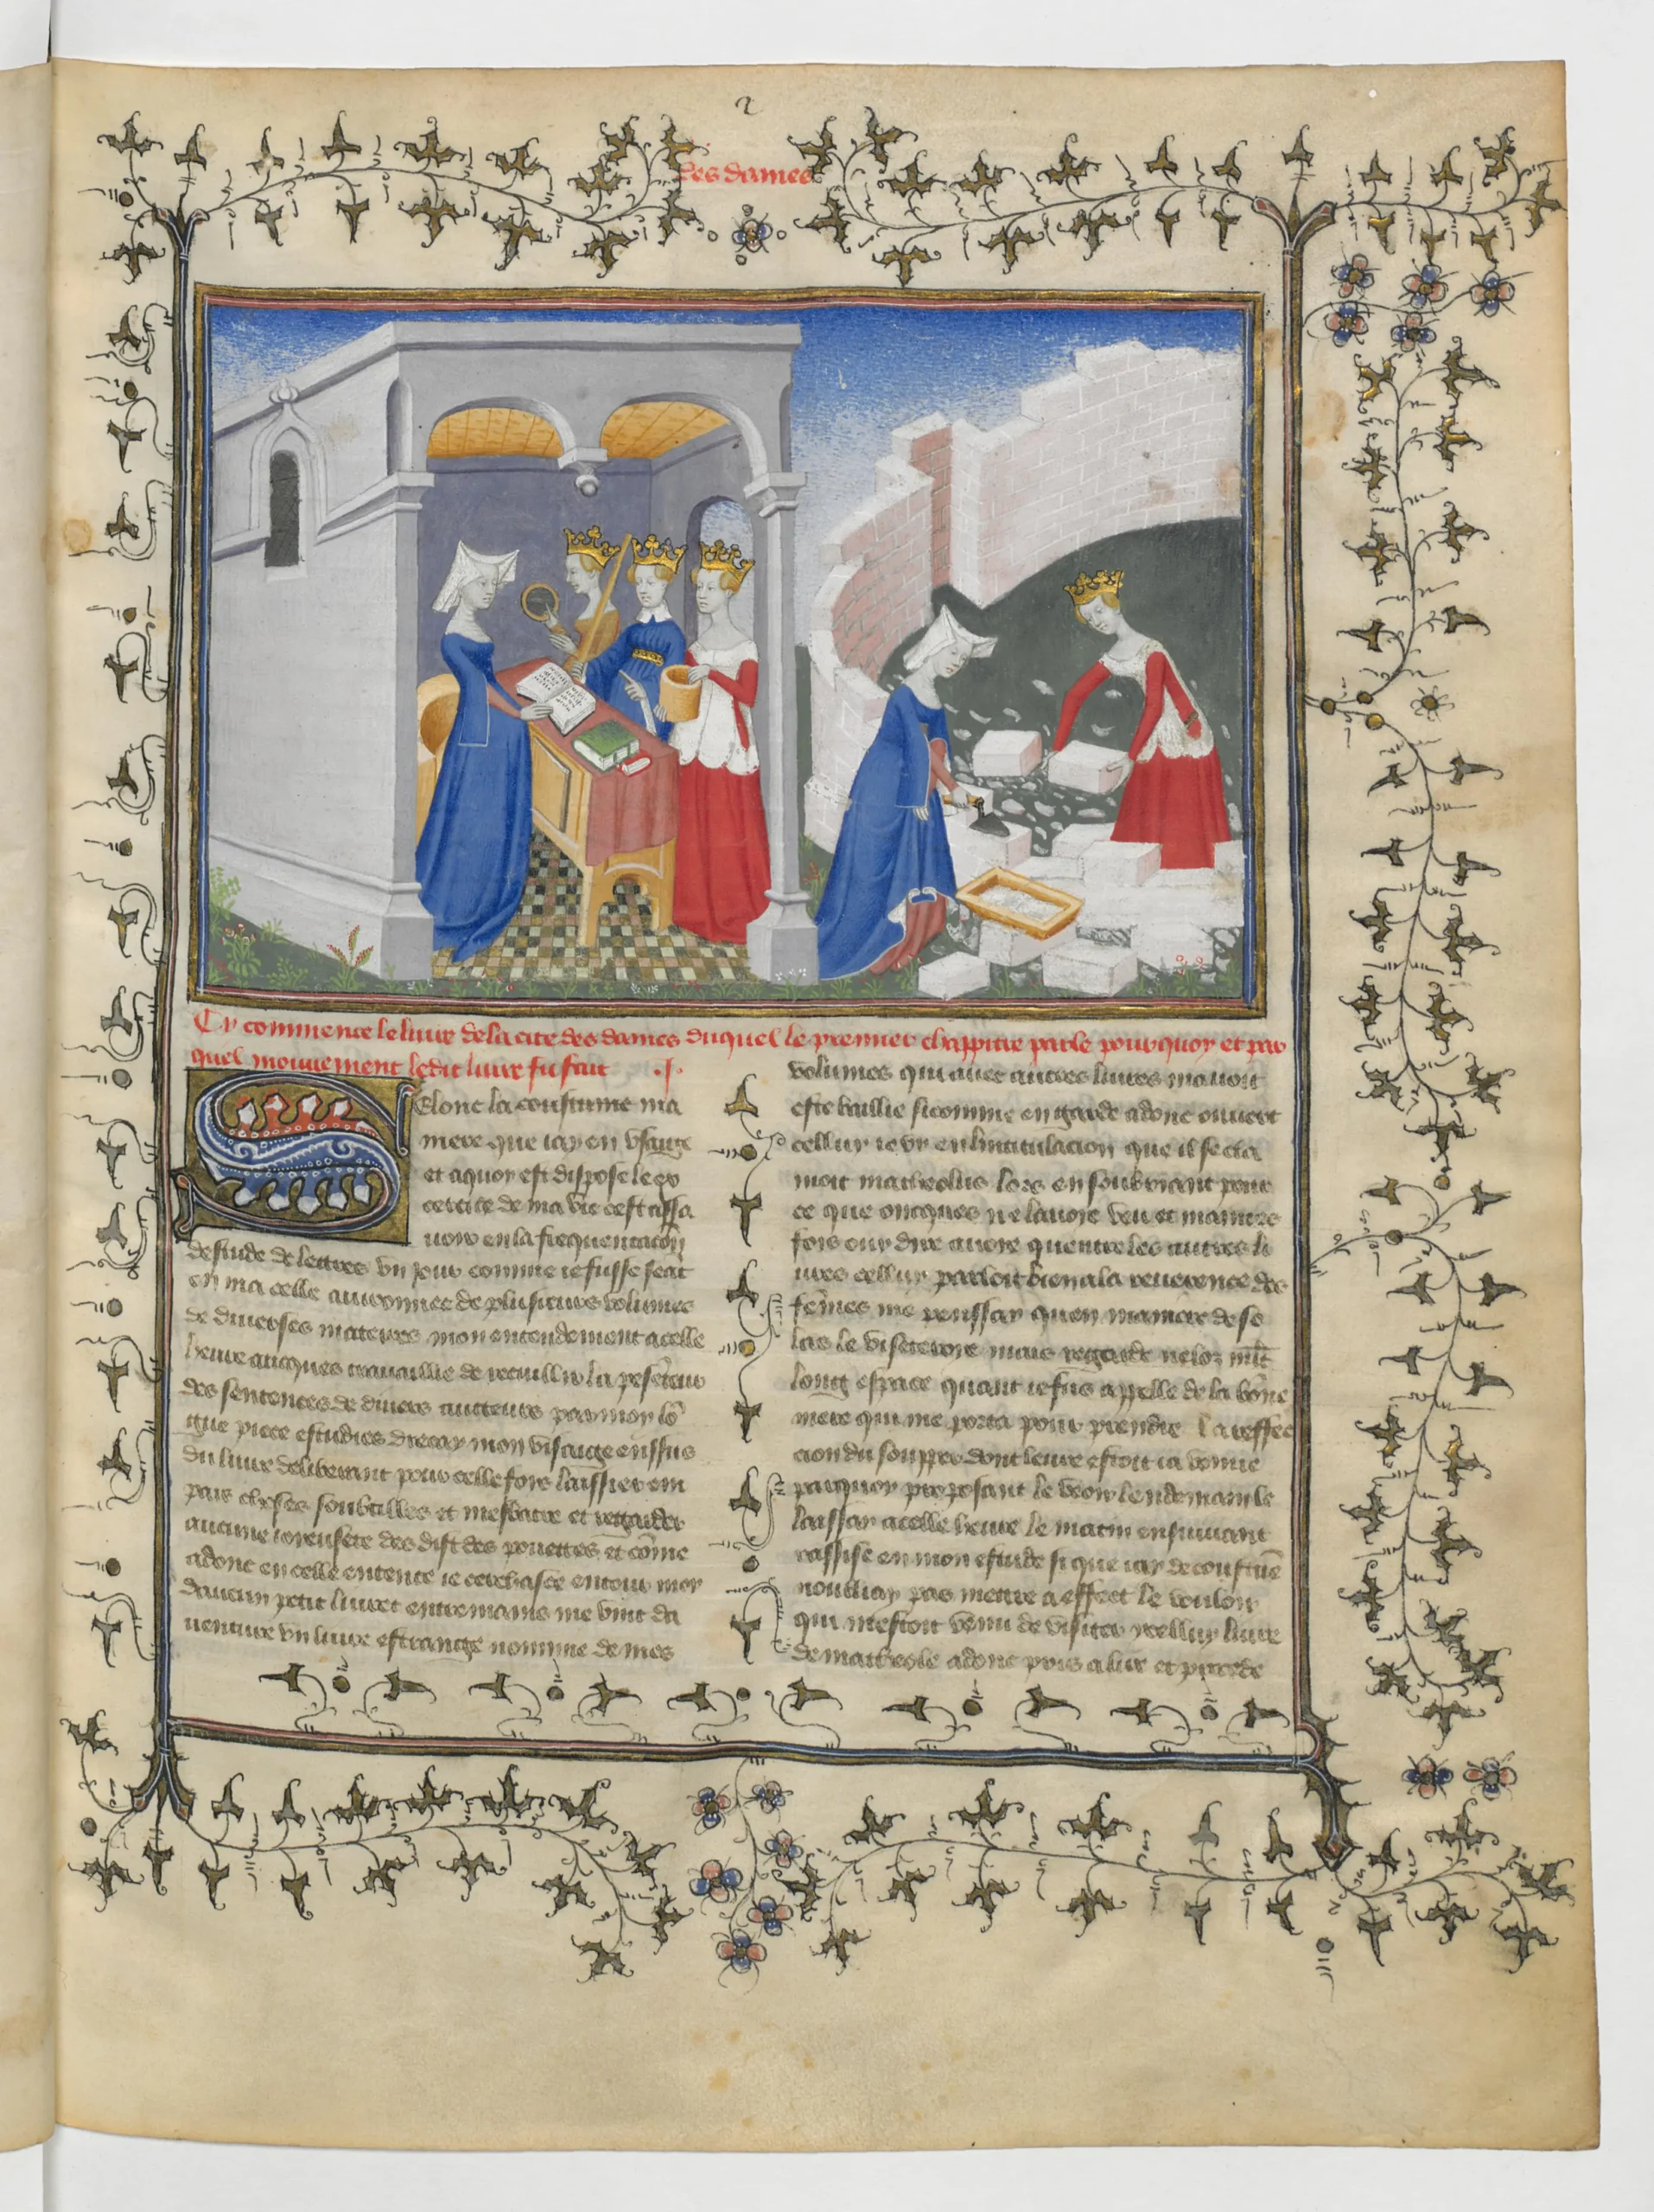 2
des dames
Cy commence le livre de la cite des dames duquel le premier chappitre parle pourquoy et par
quel mouvement ledit livre fu fait .I.
Selonc la coustume ma
niere que iay en usaige
et a quoy est dispose le ex
cercite de ma vie cest assa
uoir en la frequentacion
destude de lettres un jour comme ie fusse seāt
en ma celle auironnee de plusieurs volumes
de diuerses matieres mon entendement a celle
heure auques trauaillie de recuillir la pesēteur
des sentences de diuers aucteurs par moy lō
gue piece estudies drecay mon visaige ensus
du liure deliberant pour celle fois laissier em
pais choses soubtilles et mesbatre et regarder
aucune ioyeusete des dist des pouettes et cōme
adonc en celle entente ie cerchasse entour moy
daucun petit liuret entre mains me vint da
uenture un liure estrange nomme de mes
volumes qui auec autres liures mauoit
este baillie si comme en garde adonc ouuert
cellui ie vy en lintitulacion que il se cla
moit matheolus lors en soubriant pour
ce que oncques ne lauoie veu et maintes
fois ouy dire auoie quentre les autres li
ures cellui parloit bien a la reuerence des
fēmes me penssay quen maniere de so
las le visiteroie mais regarde ne loz mlt
long espace quant ie fus appelle de la bōne
mere qui me porta pour prendre la reffec
cion du soupper dont leure estoit ia venue
parquoy proposant le veoir lendemain le
laissay a celle heure le matin ensuiuant
rassise en mon estude si que iay de coustūe
noubliay pas mettre a effect le vouloir
qui mestoit venu de visiter ycelluy liure
de matheole adonc pris a lire et procede